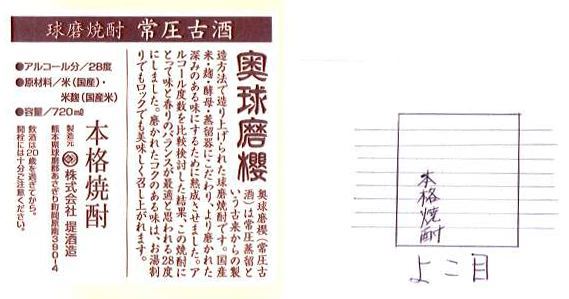 球磨焼酎 常圧古酒
奥球磨櫻
奥球磨櫻(常圧古
酒)は常圧蒸留と
いう古来からの製
造方法で造り上げられた球磨焼酎です。国産
米・麹・酵母・蒸留器にこだわり、より磨かれた
深みのある味にするために熟成させました。ア
ルコール度数を比較検討した結果、この焼酎に
とって味と香りのバランスが最適と思われる28度
にしました。磨かれたコクのある味は、お湯割
りでもロックでも美味しく召し上がれます。
●アルコール分/28度
●原材料/米(国産)・
米麹(国産米)
●容量/720㎖
本格焼酎
製造元 株式会社 堤酒造
熊本県球磨郡あさぎり町岡原南390-4
飲酒は20歳を過ぎてから。
開栓には十分ご注意ください。
本格焼酎
よこ目